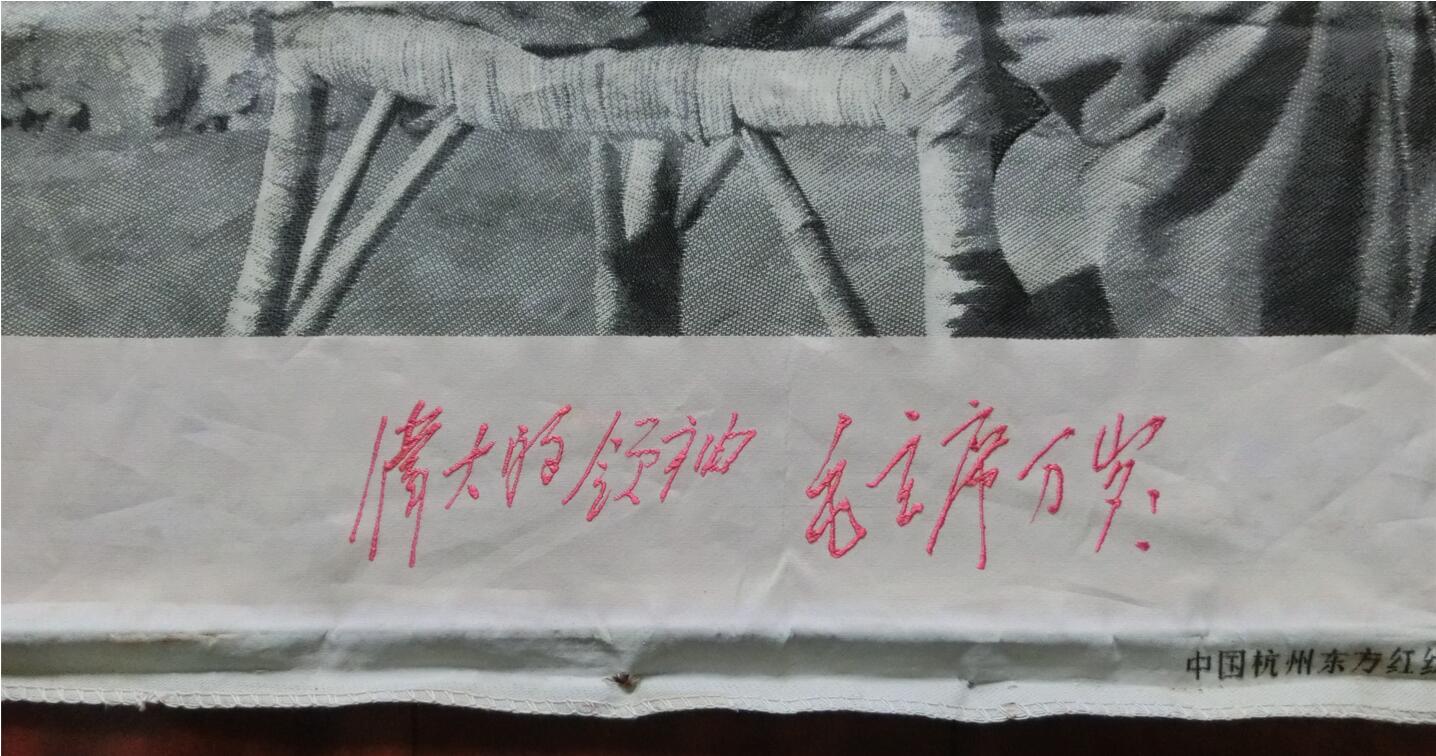 偉大的领袖 毛主席万岁!
中国杭州东方红